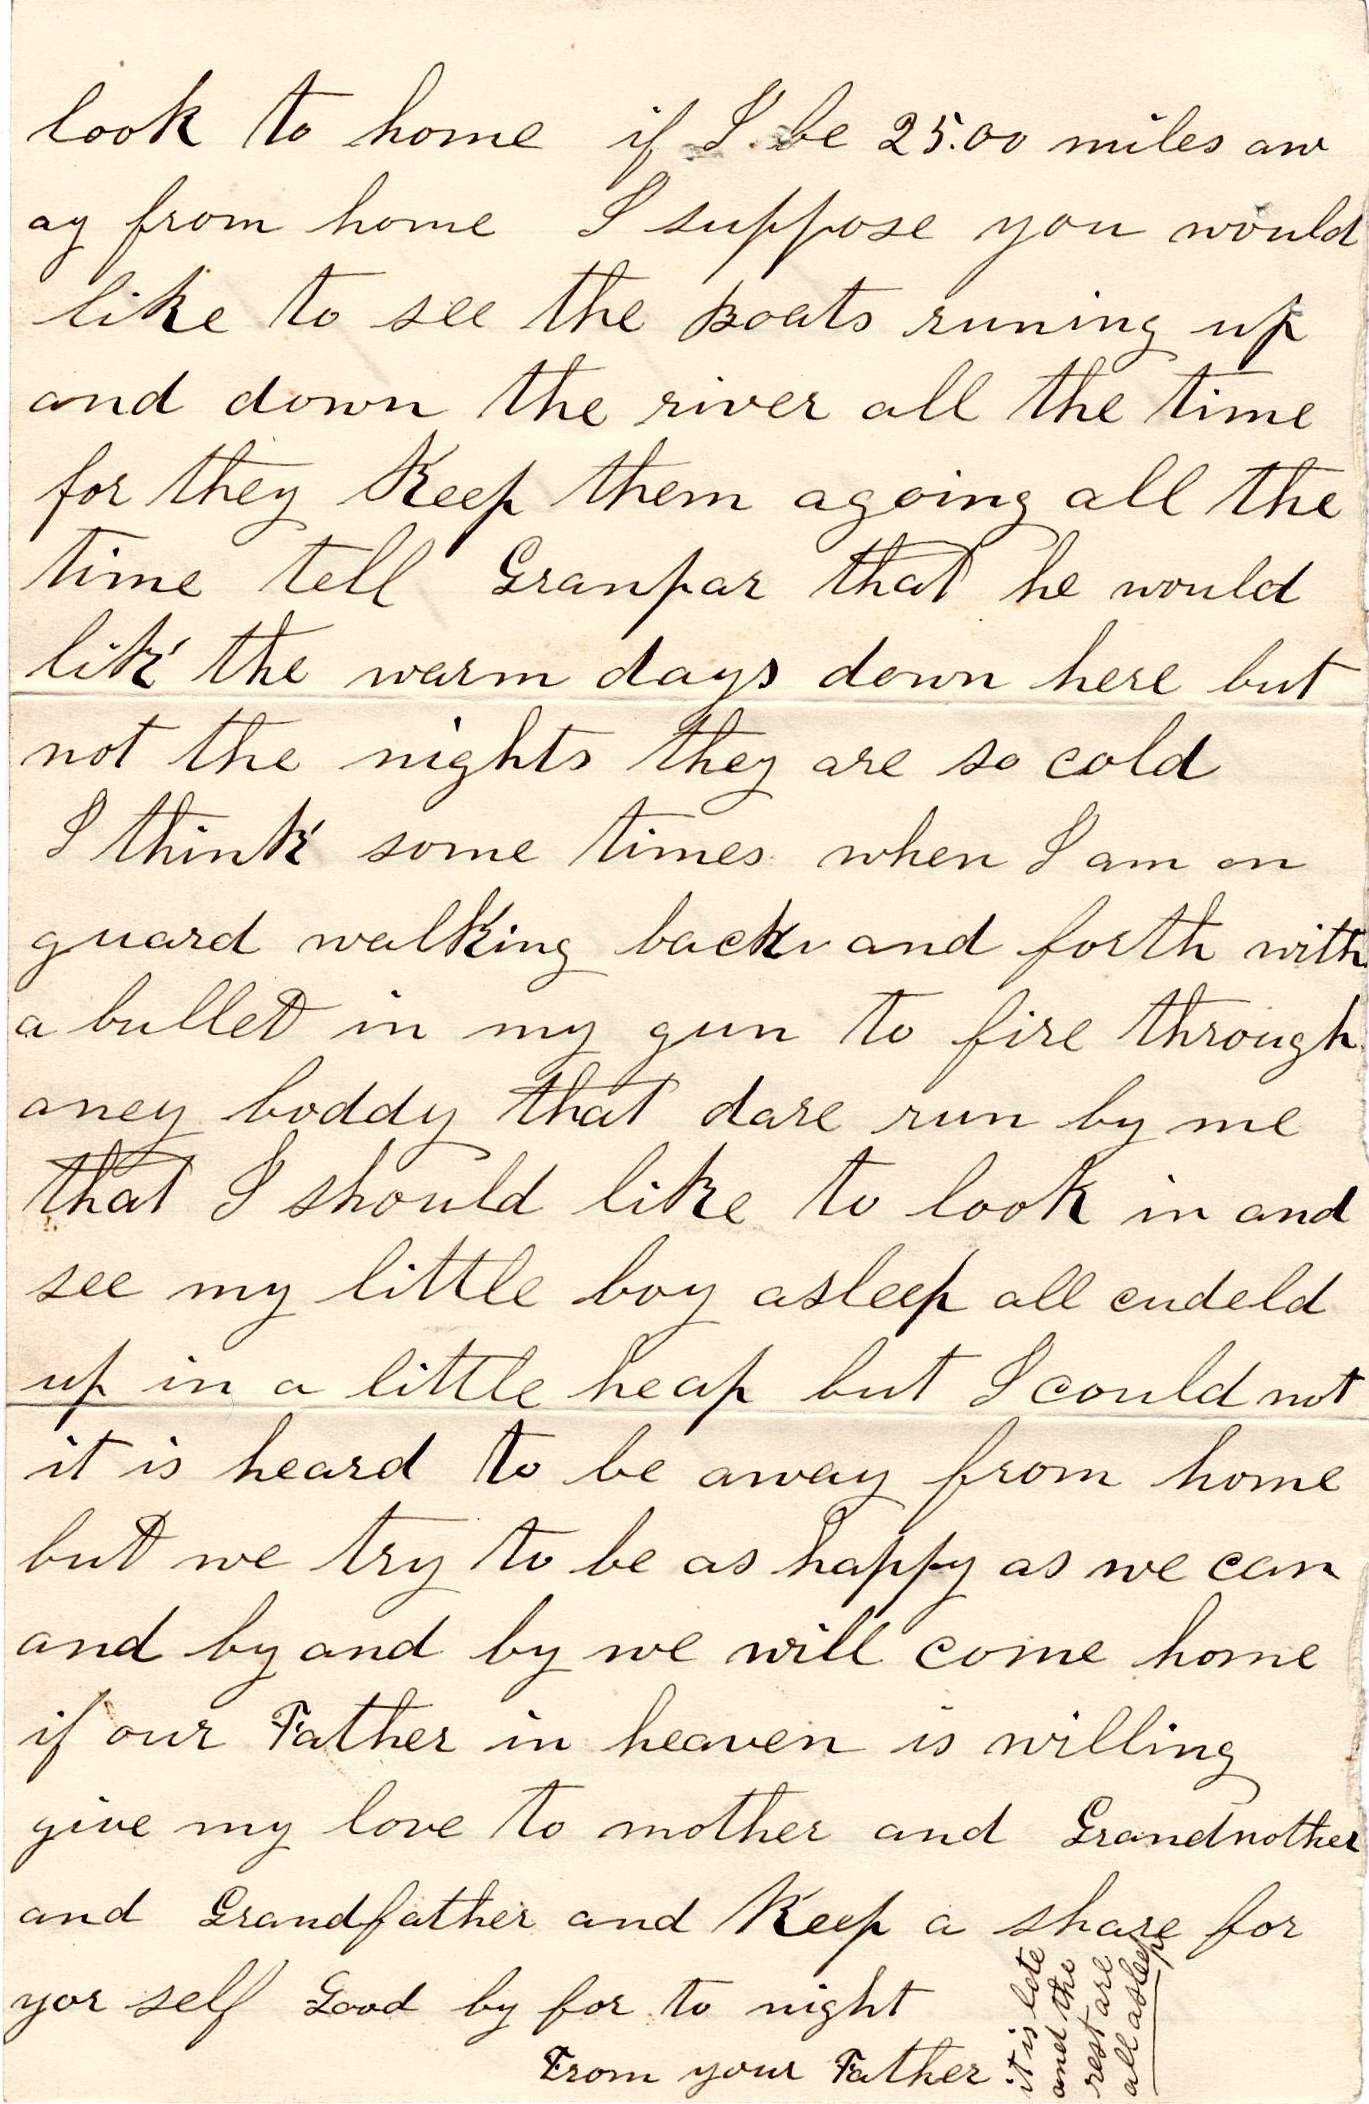 look to home if I be 25.00 miles aw
ay from home I suppose you would
like to see the Boats runing up
and down the river all the time
for they Keep them agoing all the
time tell Granpar that he would
lik the warm days down here but
not the nights they are so cold
I think some times when I am on
guard walking back and forth with
a bullet in my gun to fire through
aney boddy that dare run by me
that I should like to look in and
see my little boy asleep all cudeld
up in a little heap but I could not
it is heard to be away from home
but we try to be as happy as we can
and by and by we will come home
if our Father in heaven is willing
give my love to mother and Grandmother
and Grandfather and Keep a share for
yor self Good by for to night
From your Father
it is lete
and the
rest are
all asleep